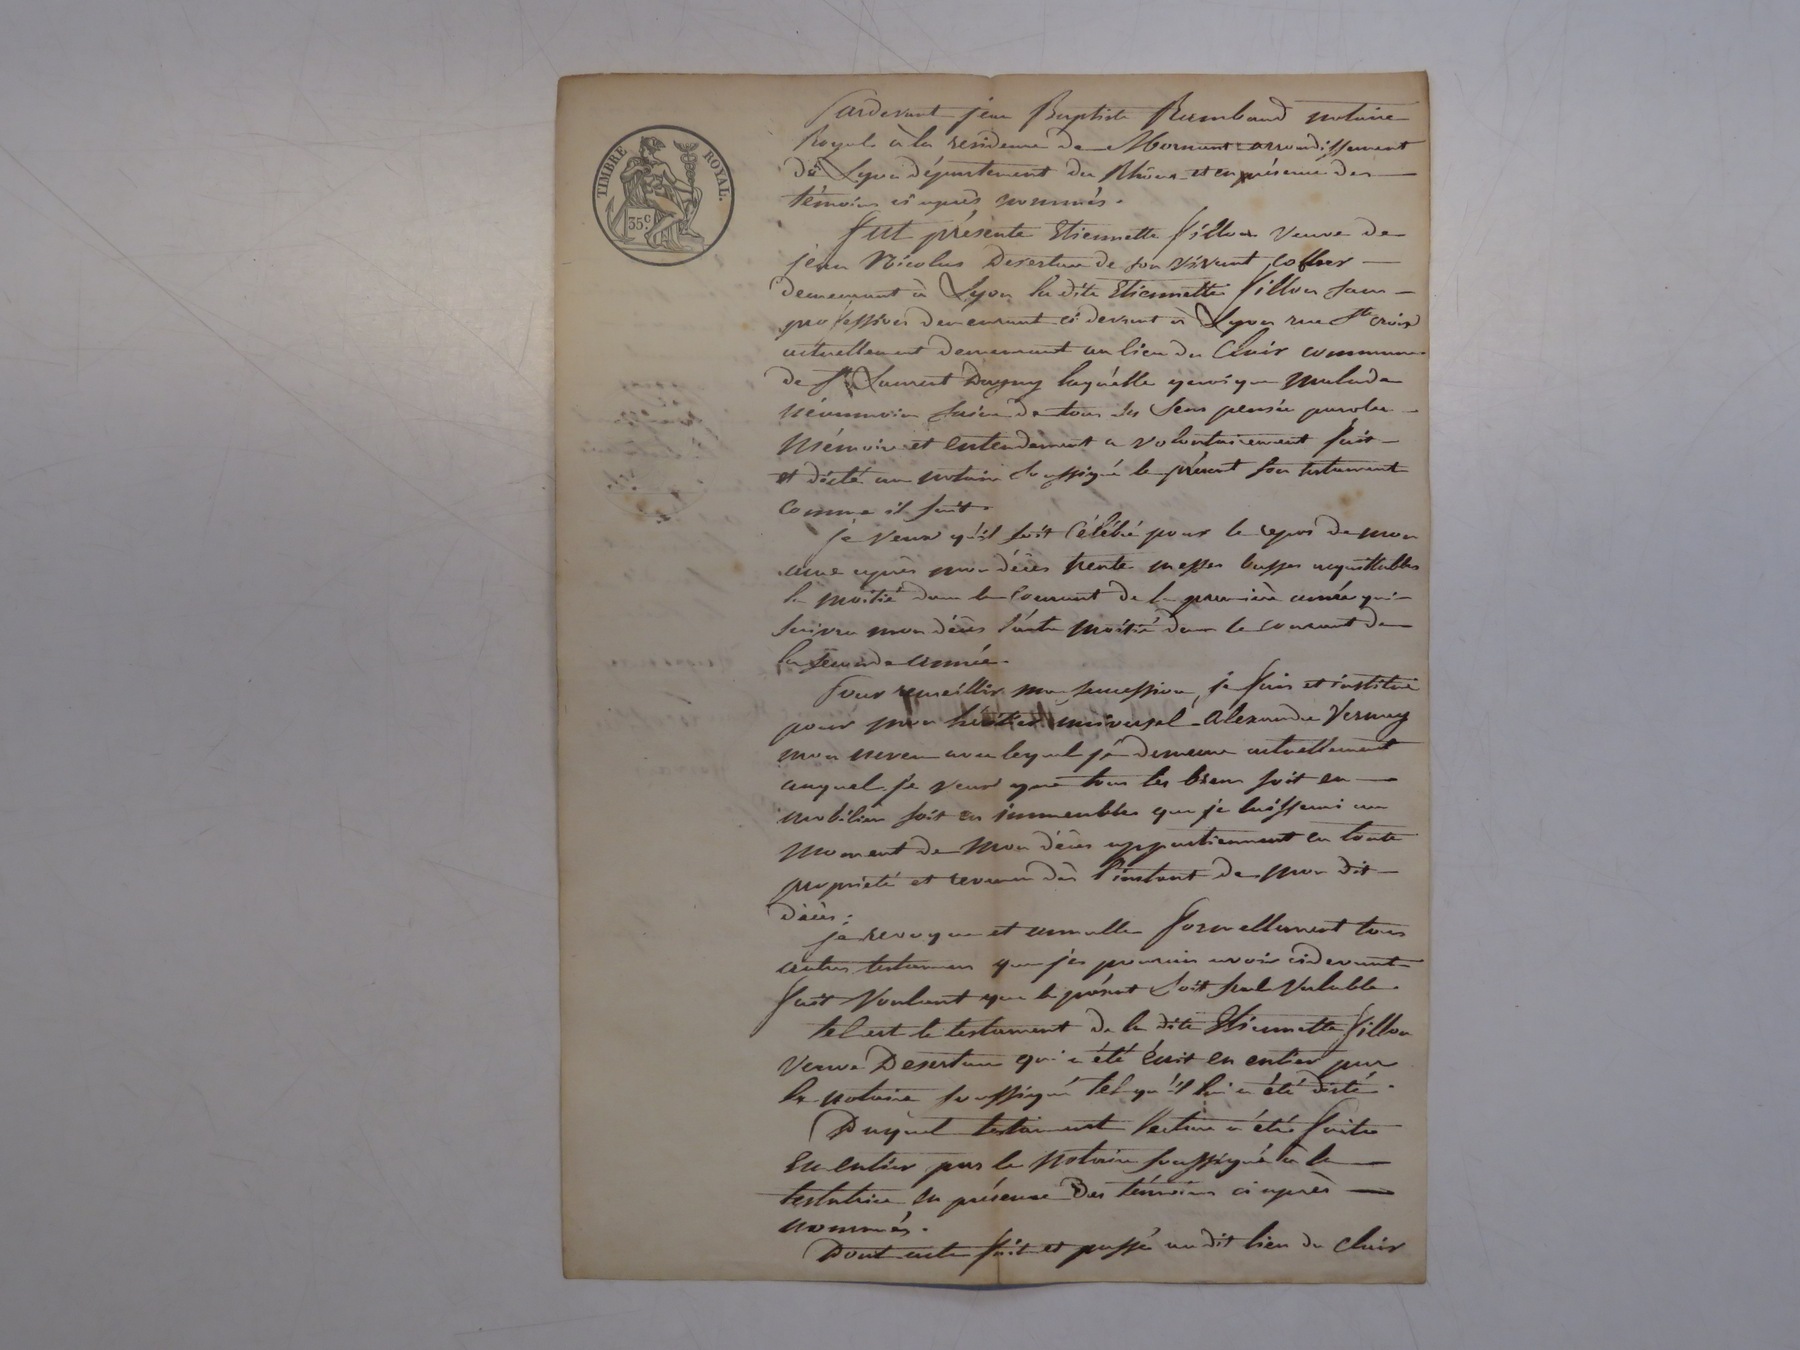 TIMBRE ROYAL.
35.c
Pardevant jean Baptiste Rambaud notaire
Royal à la residence de Mornant arrondissement
de Lyon département du Rhône et en présence des
témoins ci après nommés.
Fut présente Etiennette fillon veuve de
jean Nicolas de son vivant
demeurant à Lyon la dite Etiennette fillon sans
profession demeurant ci devant à Lyon rue Ste croix
actuellement demeurant au lieu du Clair commune
de St Laurent Dagny laquelle quoique malade
néanmoins saine de tous ses sens pensée parole
Mémoire et entendement a volontairement fait
et dicté au notaire soussigné le présent son testament
comme il suit.
je veux qu'il soit célébré pour le repos de mon
ame après mon décès trente messes basses acquittables
la moitié dans le courant de la première année qui
suivra mon décès l'autre moitié dans le courant de
la seconde année.
Pour recueillir ma succession, je fais et institue
pour mon héritier universel Alexandre Vernay
mon neveu avec lequel je demeure actuellement
auquel je veux que tous les biens soit en
mobilier soit en immeubles que je laisserai au
moment de mon décès appartiennent en toute
propriété et revenu dès l'instant de mon dit
décès;
je revoque et annulle formellement tous
autres testamens que j'es pourrais avoir cidevant
fait voulant que le présent soit seul valable.
tel est le testament de la dite Etiennette fillon
veuve qui a été écrit en entier par
le notaire soussigné tel qu'il lui a été dicté.
Duquel testament lecture a été faite
en entier par le notaire soussigné à la
testatrice en présence des témoins ci après
nommés.
Dont acte fait et passé au dit lieu du clair